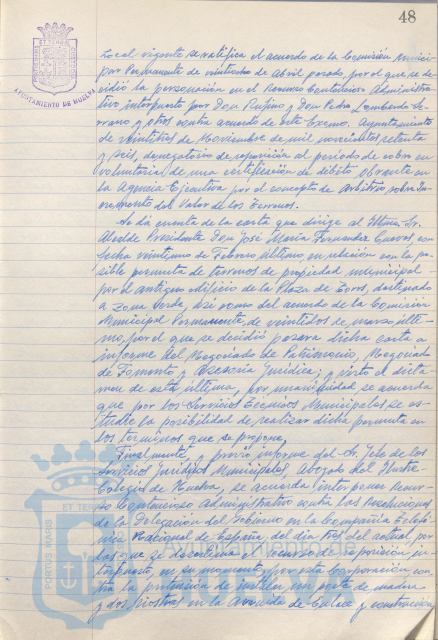 48
AYUNTAMIENTO DE HUELVA
Local vigente se ratifica el acuerdo de la Comisión Munici-
pal Permanente de veintiocho de Abril pasado, por el que se de-
cidió la personación en el Recurso Contencioso Administra-
tivo interpuesto por Don Rufino y Don Pedro Lombardo Se-
rrano y otros contra acuerdo de este Excmo. Ayuntamiento
de veintitres de Noviembre de mil novecientos setenta
y seis, denegatorio de reposición al período de cobro en
voluntaria, de una certificación de débito obrante en
la Agencia Ejecutiva por el concepto de Arbitrio sobre In-
cremento del Valor de los Terrenos.
Se da cuenta de la carta que dirige al Iltmo. Sr.
Alcalde Presidente Don José María Fernandez Cuevas, con
fecha veintiuno de Febrero último, en relación con la po-
sible permuta de terrenos de propiedad municipal
por el antiguo edificio de la Plaza de Toros, destinado
a Zona Verde, así como del acuerdo de la Comisión
Municipal Permanente, de veintidos de marzo últi-
mo, por el que se decidió pasara dicha carta a
informe del Negociado de Patrimonio, Negociado
de Fomento y Asesoría Jurídica; y visto el dicta-
men de esta última, por unanimidad se acuerda
que por los Servicios Técnicos Municipales se es-
tudie la posibilidad de realizar dicha permuta en
los términos que se propone.
Finalmente, y previo informe del Sr. Jefe de los
Servicios Jurídicos Municipales, Abogado del Ilustre
Colegio de Huelva, se acuerda interponer Recur-
so Contencioso Administrativo contra las Resoluciones
de la Delegación del Gobierno en la Compañía Telefó-
nica Nacional de España, del día tres del actual por
las que se desestima el recurso de reposición in-
terpuesto en su momento, por esta Corporación con-
tra la pretensión de instalar un poste de madera
y dos riostras en la Avenida de Enlace y construcción
PORTUS MARIS